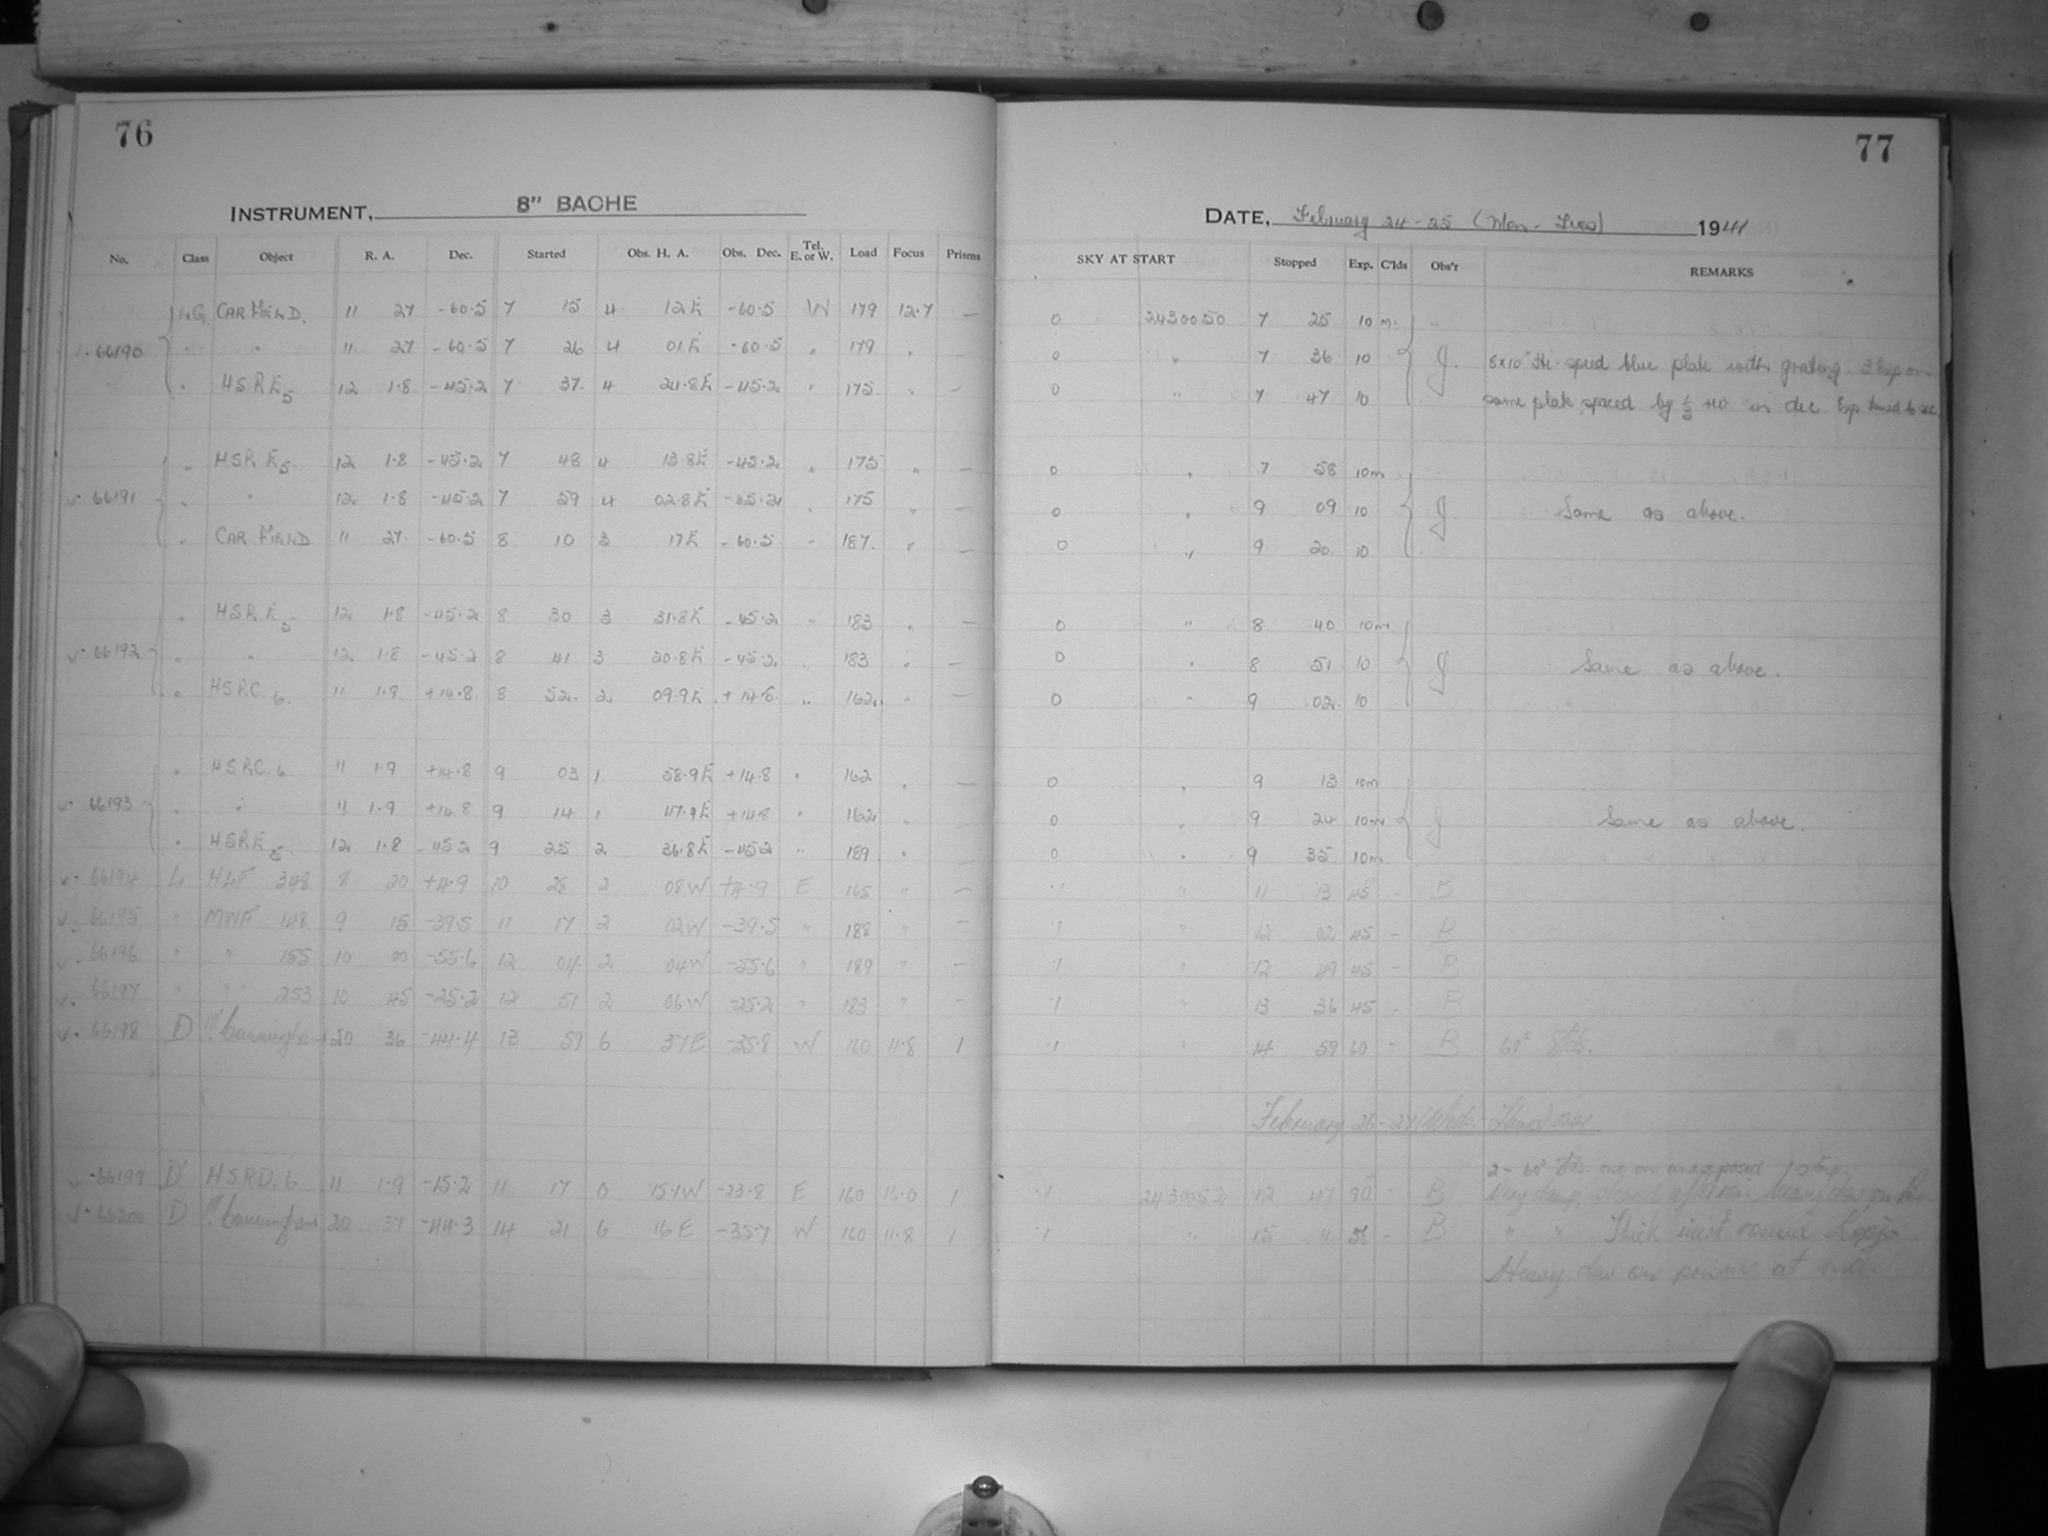 76
INSTRUMENT, 8" BACHE
No. Class Object R. A. Dec. Started Obs. H. A. Obs. Dec. Tel. E. or W. Load Focus Prisms
LG CAR FIELD. 11 27 -60.5 7 15 4 12 E -60.5 W 179 12.7 —
66190 " " 11 27 -60.5 7 26 4 01 E -60.5 " 179 " —
" HSR E5 12 1.8 -45.2 7 37 4 24.8 E -45.2 " 175 " —
" HSR E5 12 1.8 -45.2 7 48 4 13.8 E -45.2 " 175 " —
v. 66191 " " 12 1.8 -45.2 7 59 4 02.8 E -45.2 " 175 " —
" CAR FIELD 11 27 -60.5 8 10 3 17 E -60.5 " 187 " —
" HSR E5 12 1.8 -45.2 8 30 3 31.8 E -45.2 " 183 " —
v. 66192 " " 12 1.8 -45.2 8 41 3 20.8 E -45.2 " 183 " —
" HSRC 6 11 1.9 +14.8 8 52 2 09.9 E +14.8 " 162 " —
" HSRC. 6 11 1.9 +14.8 9 03 1 58.9 E +14.8 " 162 " —
v. 66193 " " 11 1.9 +14.8 9 14 1 47.9 E +14.8 " 162 " —
" HSR E5 12 1.8 -45.2 9 25 2 36.8 E -45.2 " 189 " —
v. 66194 L HLF 348 8 20 +4.9 10 28 2 08 W +4.9 E 165 " —
v. 66195 " MWF 148 9 15 -39.5 11 17 2 02 W -39.5 " 188 " —
v. 66196 " " 155 10 00 -55.6 12 04 2 04 W -55.6 " 189 " —
v. 66197 " " 253 10 45 -25.2 12 51 2 06 W -25.2 " 183 " —
v. 66198 D Cunningham 20 36 -44.4 13 59 6 37 E -35.8 W 160 11.8 1
v. 66199 D' HSRD. 6 11 1.9 -15.2 11 17 0 15.1 W -23.8 E 160 16.0 1
v. 66200 D Cunningham 20 37 -44.3 14 21 6 16 E -35.7 W 160 11.8 1
77
DATE, February 24-25 (Mon - Tues) 1941
SKY AT START Stopped Exp. C'lds Obs'r REMARKS
0 2430050 7 25 10 m.
0 " 7 36 10 J. 8x10" Hi-speed blue plate with grating. 3 Exp on
0 " 7 47 10 same plate spaced by in dec. Exp timed to sec
0 " 7 58 10m
0 " 9 09 10 J. Same as above.
0 " 9 20 10
0 " 8 40 10m
0 " 8 51 10 J Same as above.
0 " 9 02 10
0 " 9 13 10m
0 " 9 24 10m J Same as above.
0 " 9 35 10m
.1 " 11 13 45 - B
.1 " 12 02 45 - B
.1 " 12 49 45 - B
.1 " 13 36 45 - B
.1 " 14 59 60 - B 60s Stds.
February 26-27 (Weds. - Thurs) 1941
2- 60s Stds. one on unexposed strip.
.1 2430052 12 47 90 - B Very damp, after rain, heavy dew on
.1 " 15 11 - B " " Thick mist round Kopje
Heavy dew on prism at end.